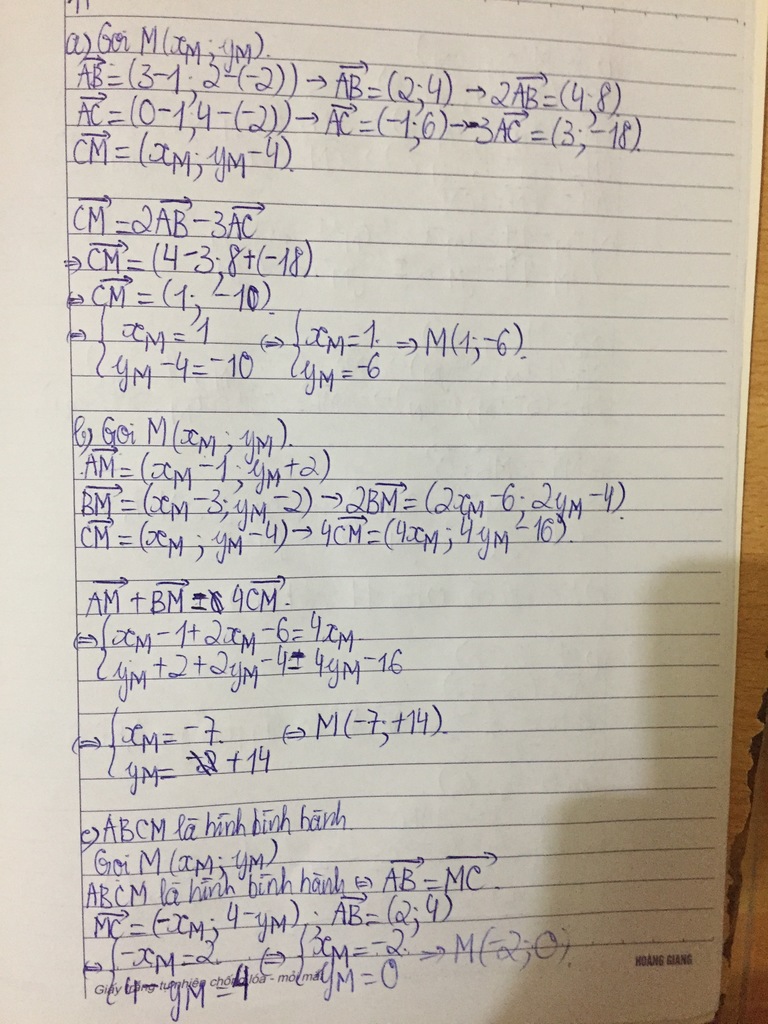 a) Gọi M(xM; yM).
AB→ = (3-1; 2-(-2)) → AB→ = (2;4) → 2AB→ = (4;8)
AC→ = (0-1; 4-(-2)) → AC→ = (-1;6) → -3AC→ = (3;-18)
CM→ = (xM; yM-4)
CM→ = 2AB→ - 3AC→
⇒ CM→ = (4-3; 8+(-18)
⇔ CM→ = (1; -10)
⇔ { xM = 1 ⇔ { xM = 1. ⇒ M(1;-6).
yM - 4 = -10 yM = -6
b) Gọi M(xM; yM).
AM→ = (xM-1; yM+2)
BM→ = (xM-3; yM-2) → 2BM→ = (2xM-6; 2yM-4)
CM→ = (xM; yM-4) → 4CM→ = (4xM; 4yM-16).
AM→ + BM→ = 4CM→.
⇔ { xM-1+2xM-6 = 4xM
yM+2+2yM-4 = 4yM-16
⇔ { xM = -7. ⇔ M(-7;+14).
yM = +14
c) ABCM là hình bình hành
Gọi M(xM; yM)
ABCM là hình bình hành ⇔ AB→ = MC→.
MC→ = (-xM; 4-yM); AB→ = (2;4)
⇔ { -xM = 2 ⇔ { xM = -2 ⇒ M(-2;0).
4 - yM = 4 yM = 0
HOÀNG GIANG
Giấy trắng tự nhiên chống lóa - mỏi mắt